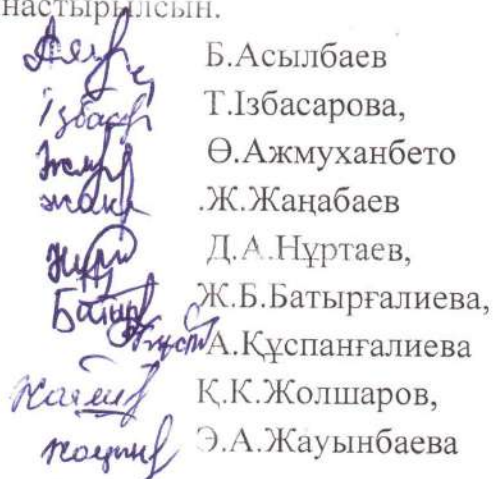 настырылсын.
Б.Асылбаев
Ізбас Т.Ізбасарова,
Ө.Ажмуханбето
жана .Ж.Жаңабаев
Д.А.Нұртаев,
Батыр Ж.Б.Батырғалиева,
А.Құспанғалиева
Қ.К.Жолшаров,
Э.А.Жауынбаева